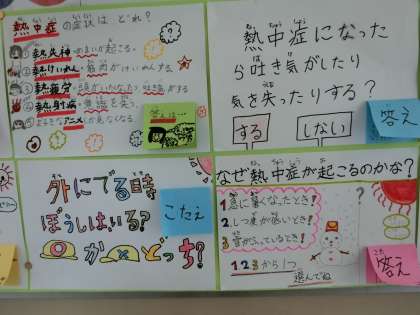 熱中症の症状はどれ?
①熱失神 めまいが起こる。
②熱けいれん 筋肉がけいれんする。
③熱疲労
④熱射病 意識を失う。
⑤好きなアニメしか見なくなる。
答えは…
熱中症になった
ら吐き気がしたり
気を失ったりする?
する しない
答え
外にでる時
ぼうしはいる?
か どっち?
こたえ
なぜ熱中症が起こるのかな?
1.急に暑くなったとき!
2.しつ度が低いとき!
3.雪がふっているとき!
1 2 3 から1つ
選んでね
答え